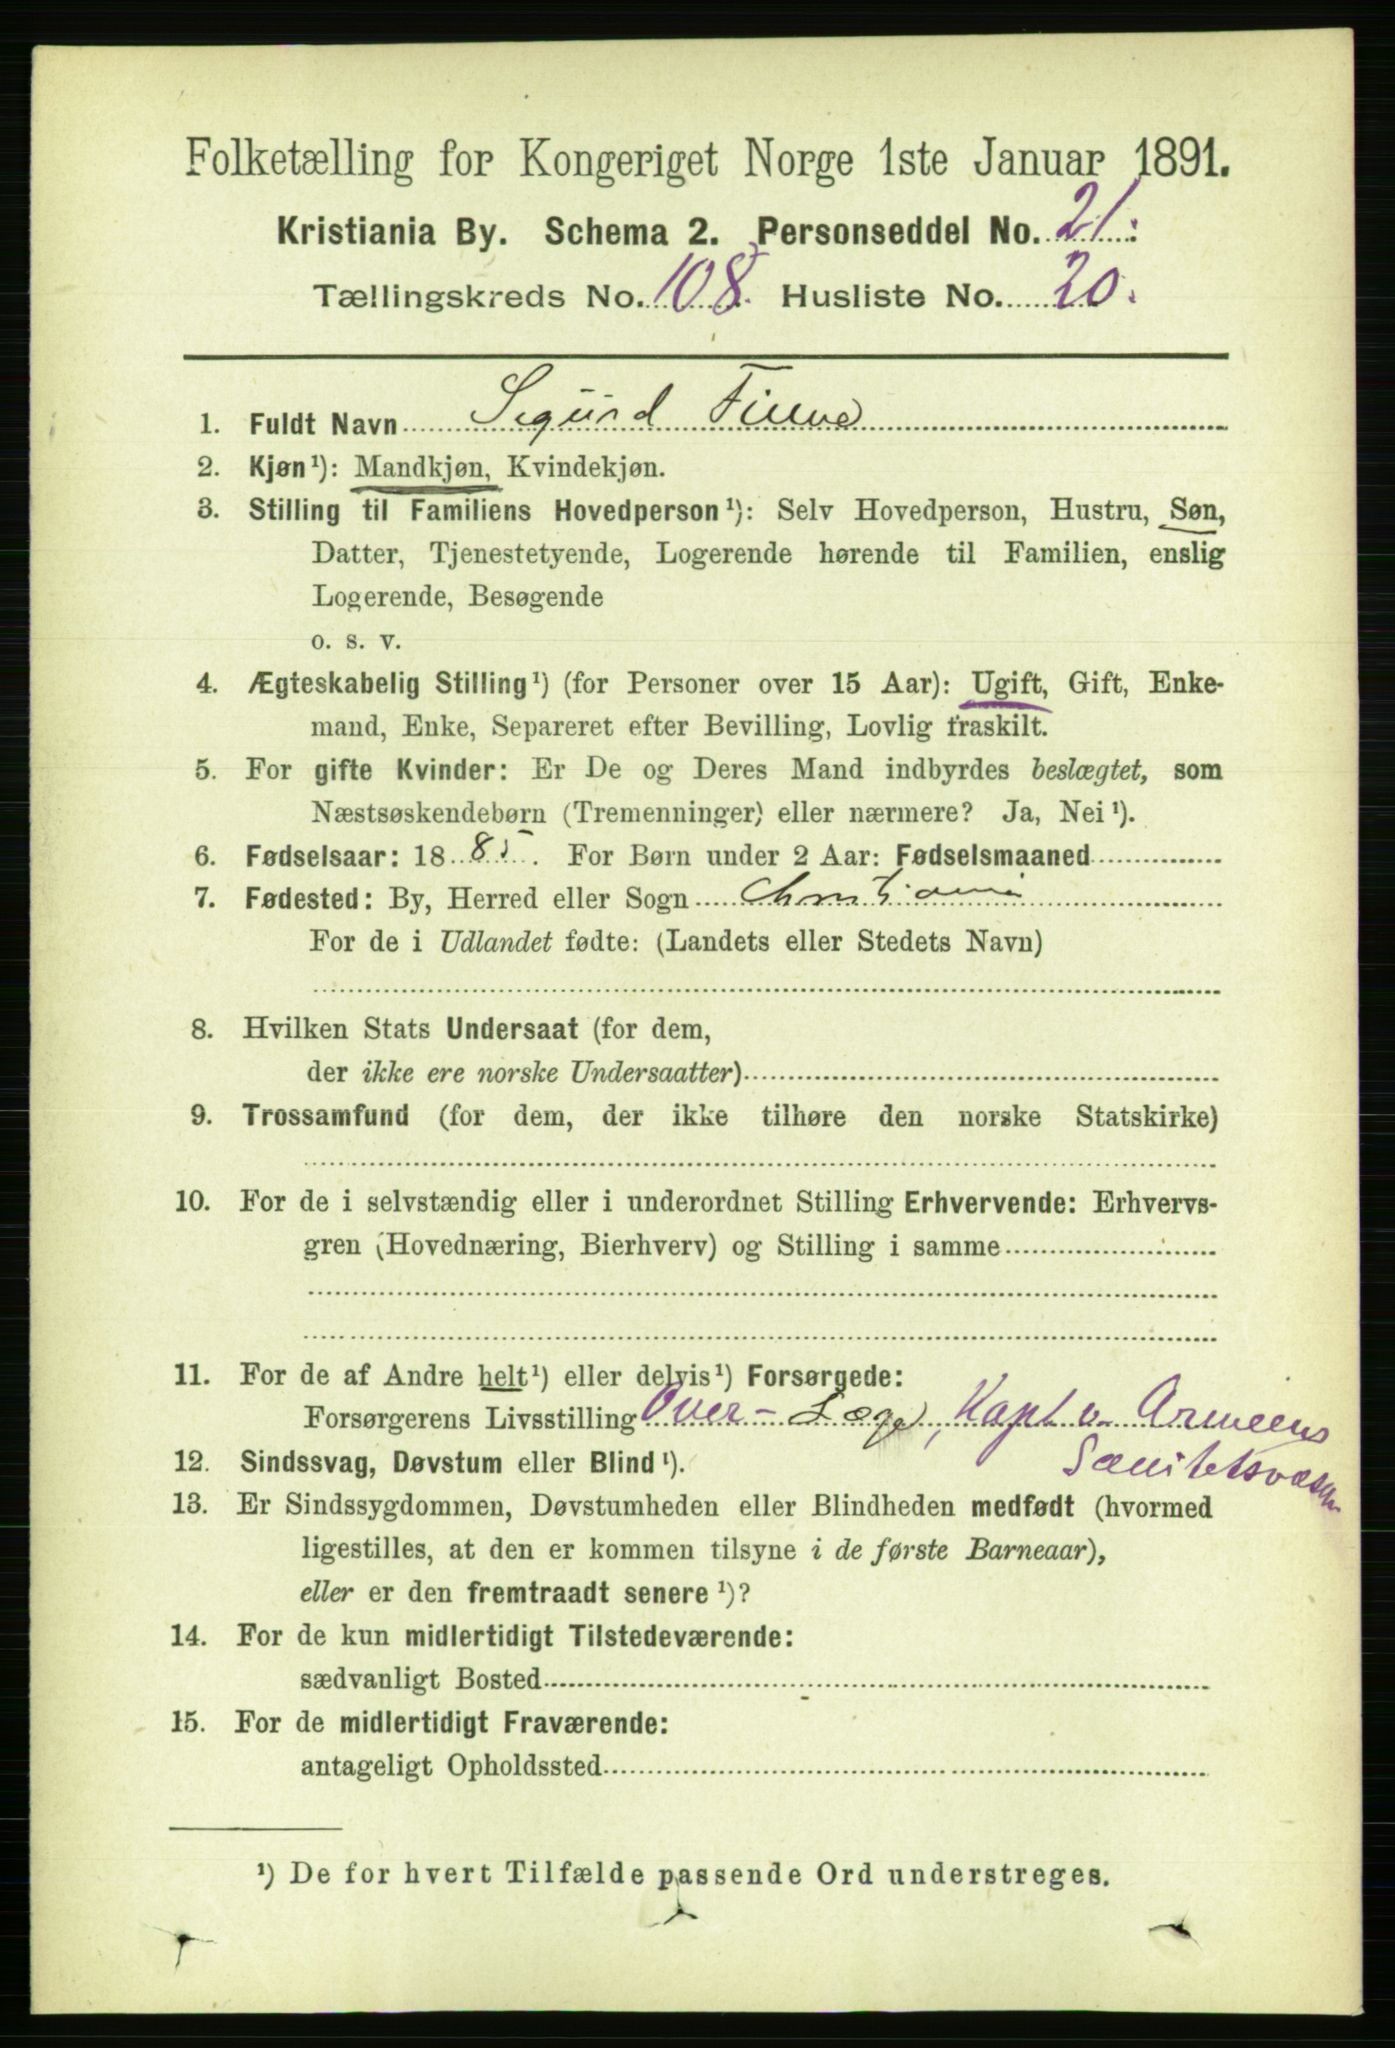 Folketælling for Kongeriget Norge 1ste Januar 1891.
Kristiania By. Schema 2. Personseddel No. 21.
Tællingskreds No. 108. Husliste No. 20.
1. Fuldt Navn Sigurd
2. Kjøn¹): Mandkjøn, Kvindekjøn.
3. Stilling til Familiens Hovedperson¹): Selv Hovedperson, Hustru, Søn,
Datter, Tjenestetyende, Logerende hørende til Familien, enslig
Logerende, Besøgende
o. s. v.
4. Ægteskabelig Stilling¹) (for Personer over 15 Aar): Ugift, Gift, Enke-
mand, Enke, Separeret efter Bevilling, Lovlig fraskilt.
5. For gifte Kvinder: Er De og Deres Mand indbyrdes beslægtet, som
Næstsøskendebørn (Tremenninger) eller nærmere? Ja, Nei¹).
6. Fødselsaar: 1885. For Børn under 2 Aar: Fødselsmaaned
7. Fødested: By, Herred eller Sogn Christiania
For de i Udlandet fødte: (Landets eller Stedets Navn)
8. Hvilken Stats Undersaat (for dem,
der ikke ere norske Undersaatter)
9. Trossamfund (for dem, der ikke tilhøre den norske Statskirke)
10. For de i selvstændig eller i underordnet Stilling Erhvervende: Erhvervs-
gren (Hovednæring, Bierhverv) og Stilling i samme
11. For de af Andre helt¹) eller delvis¹) Forsørgede:
Forsørgerens Livsstilling Over-Læge, Kapt v. Armeens
Sanitetsvæsen
12. Sindssvag, Døvstum eller Blind¹).
13. Er Sindssygdommen, Døvstumheden eller Blindheden medfødt (hvormed
ligestilles, at den er kommen tilsyne i de første Barneaar),
eller er den fremtraadt senere¹)?
14. For de kun midlertidigt Tilstedeværende:
sædvanligt Bosted
15. For de midlertidigt Fraværende:
antageligt Opholdssted
¹) De for hvert Tilfælde passende Ord understreges.